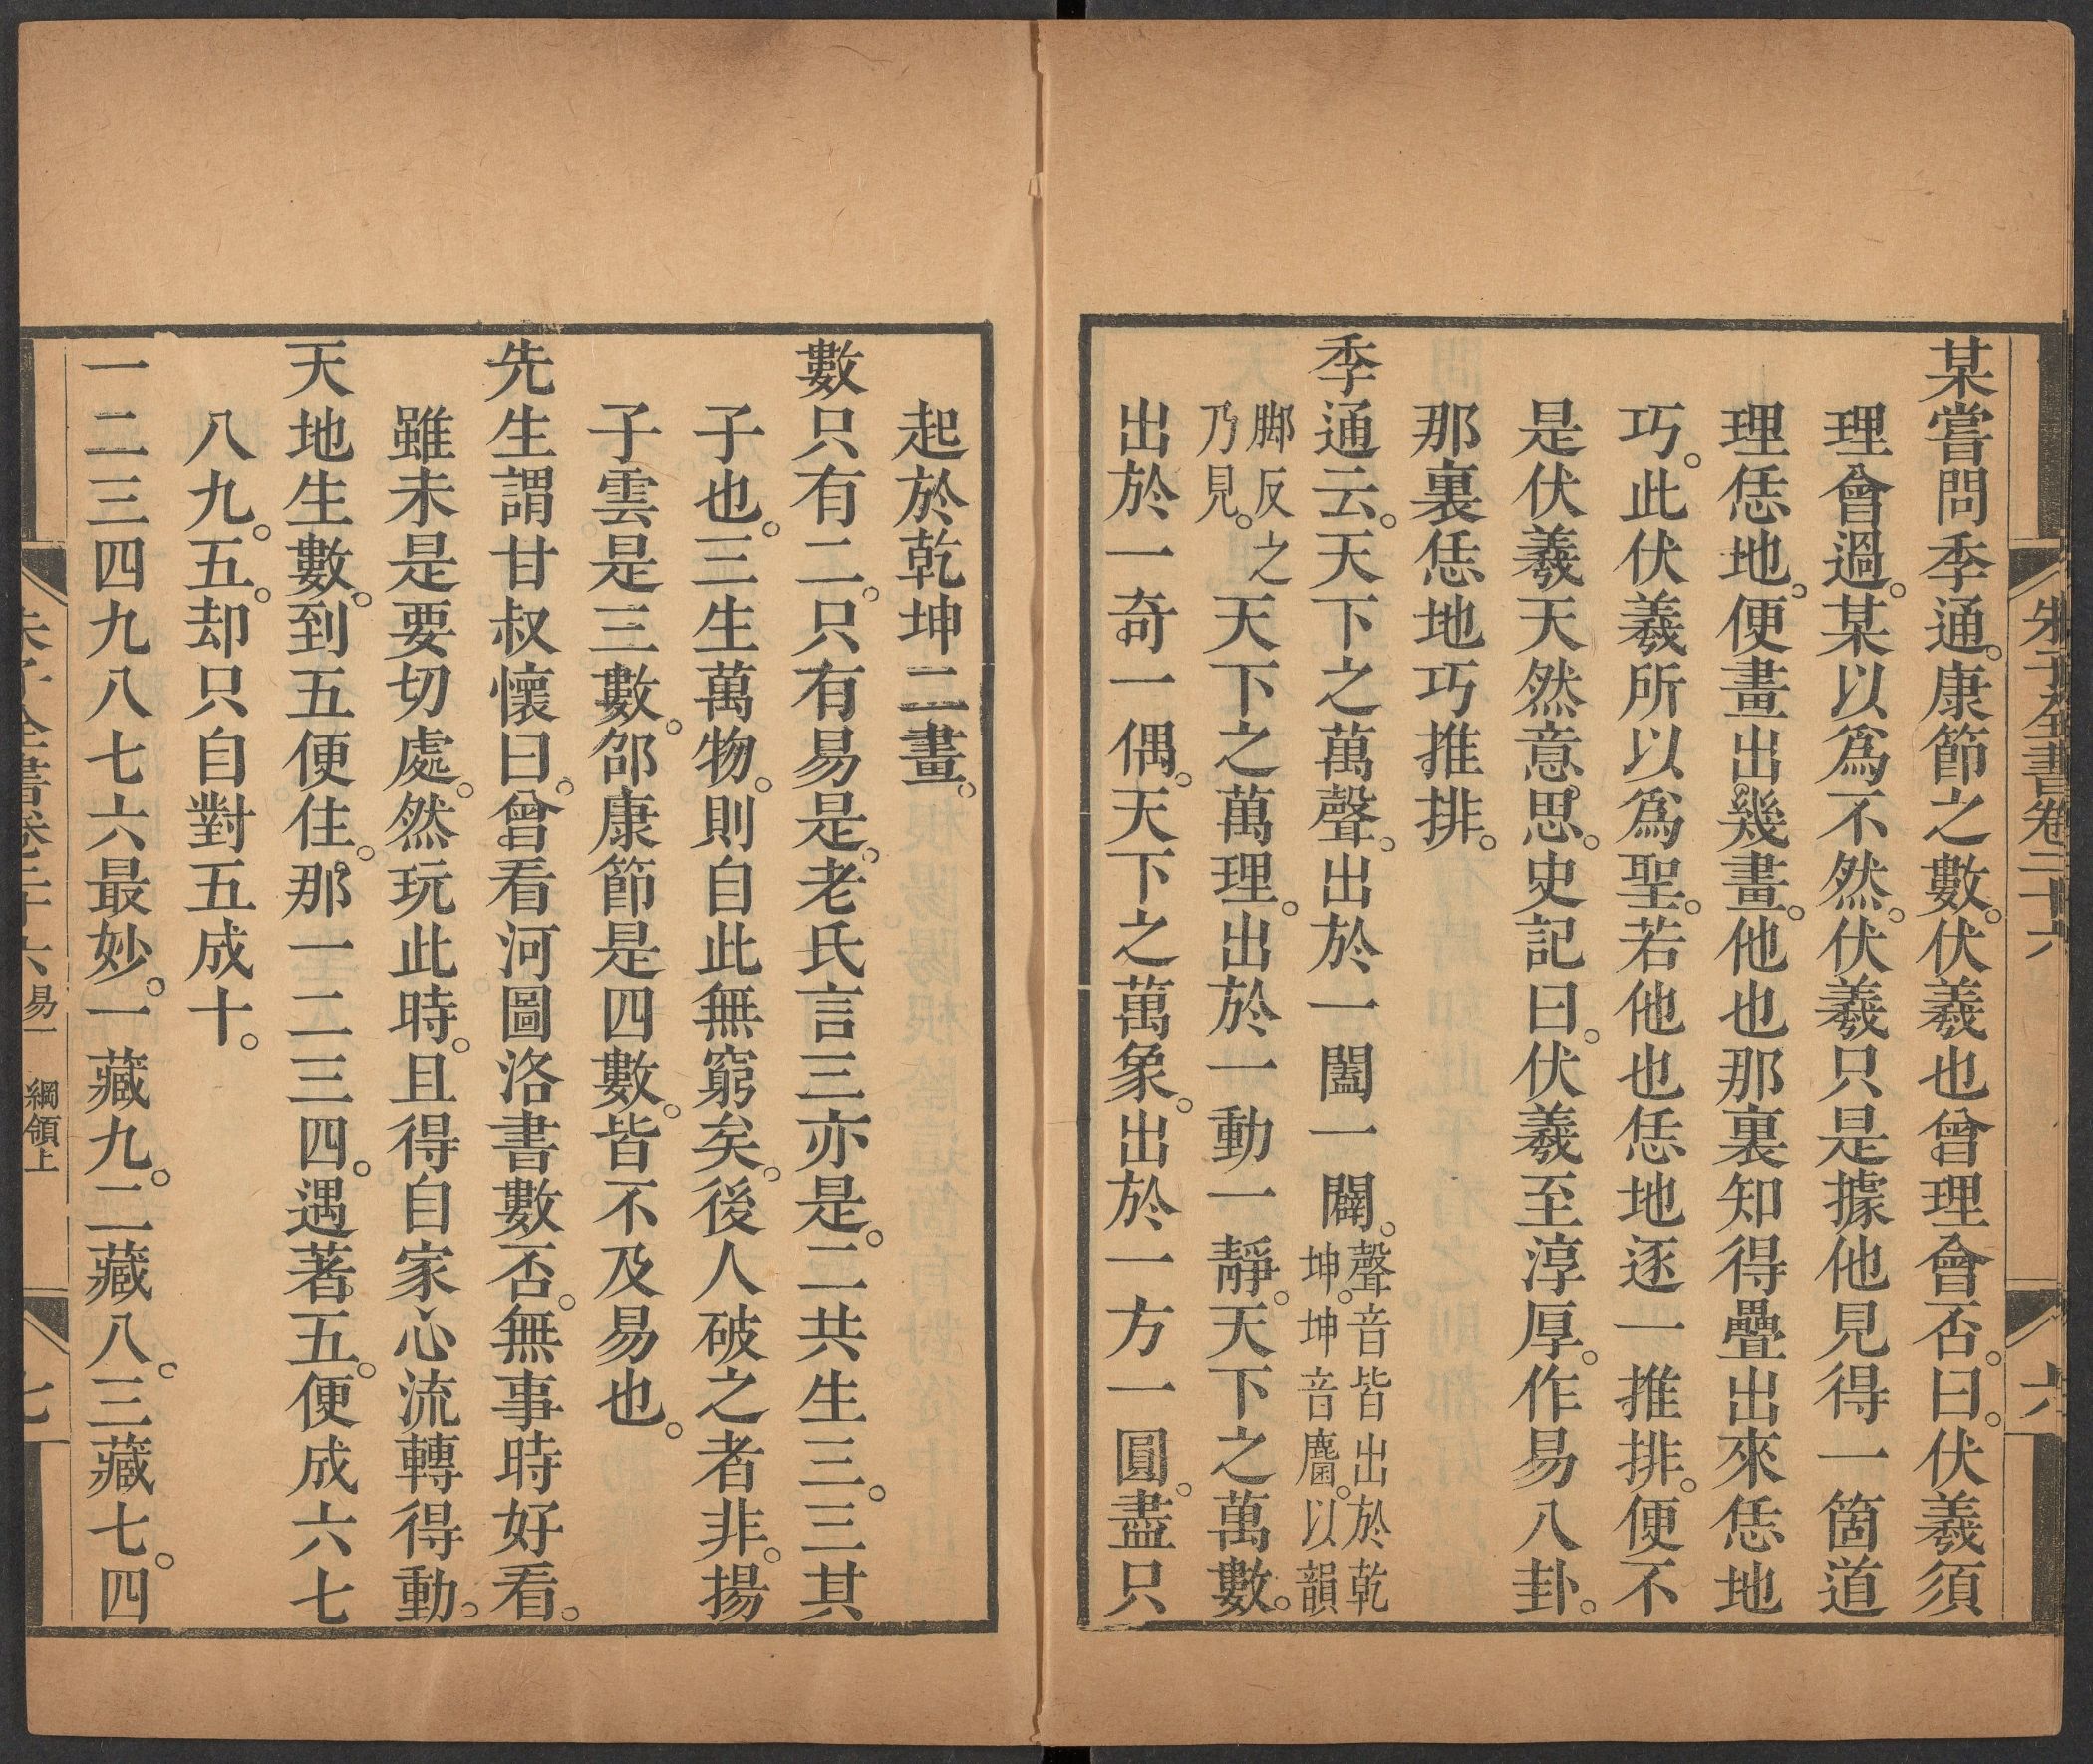 朱子全書卷二十六
六
某嘗問季通。康節之數。伏羲也曾理會否。曰。伏羲須
理會過。某以爲不然。伏羲只是據他見得一箇道
理恁地。便畫出幾畫。他也那裏知得疊出來恁地
巧。此伏羲所以爲聖。若他也恁地逐一推排。便不
是伏羲天然意思。史記曰。伏羲至淳厚。作易八卦。
那裏恁地巧推排。
季通云。天下之萬聲。出於一闔一闢。聲音皆出於乾
坤。坤音麕。以韻
腳反之
乃見。天下之萬理。出於一動一靜。天下之萬數。
出於一奇一偶。天下之萬象。出於一方一圓。盡只
起於乾坤二畫。
數只有二。只有易是。老氏言三亦是。二共生三。三其
子也。三生萬物。則自此無窮矣。後人破之者非。揚
子雲是三數。邵康節是四數。皆不及易也。
先生謂甘叔懷曰。曾看河圖洛書數否。無事時好看。
雖未是要切處。然玩此時。且得自家心流轉得動。
天地生數。到五便住。那一二三四。遇著五。便成六七
八九。五。却只自對五成十。
一二三四九八七六最妙。一藏九。二藏八。三藏七。四
朱子全書卷二十六 易一 綱領上
七